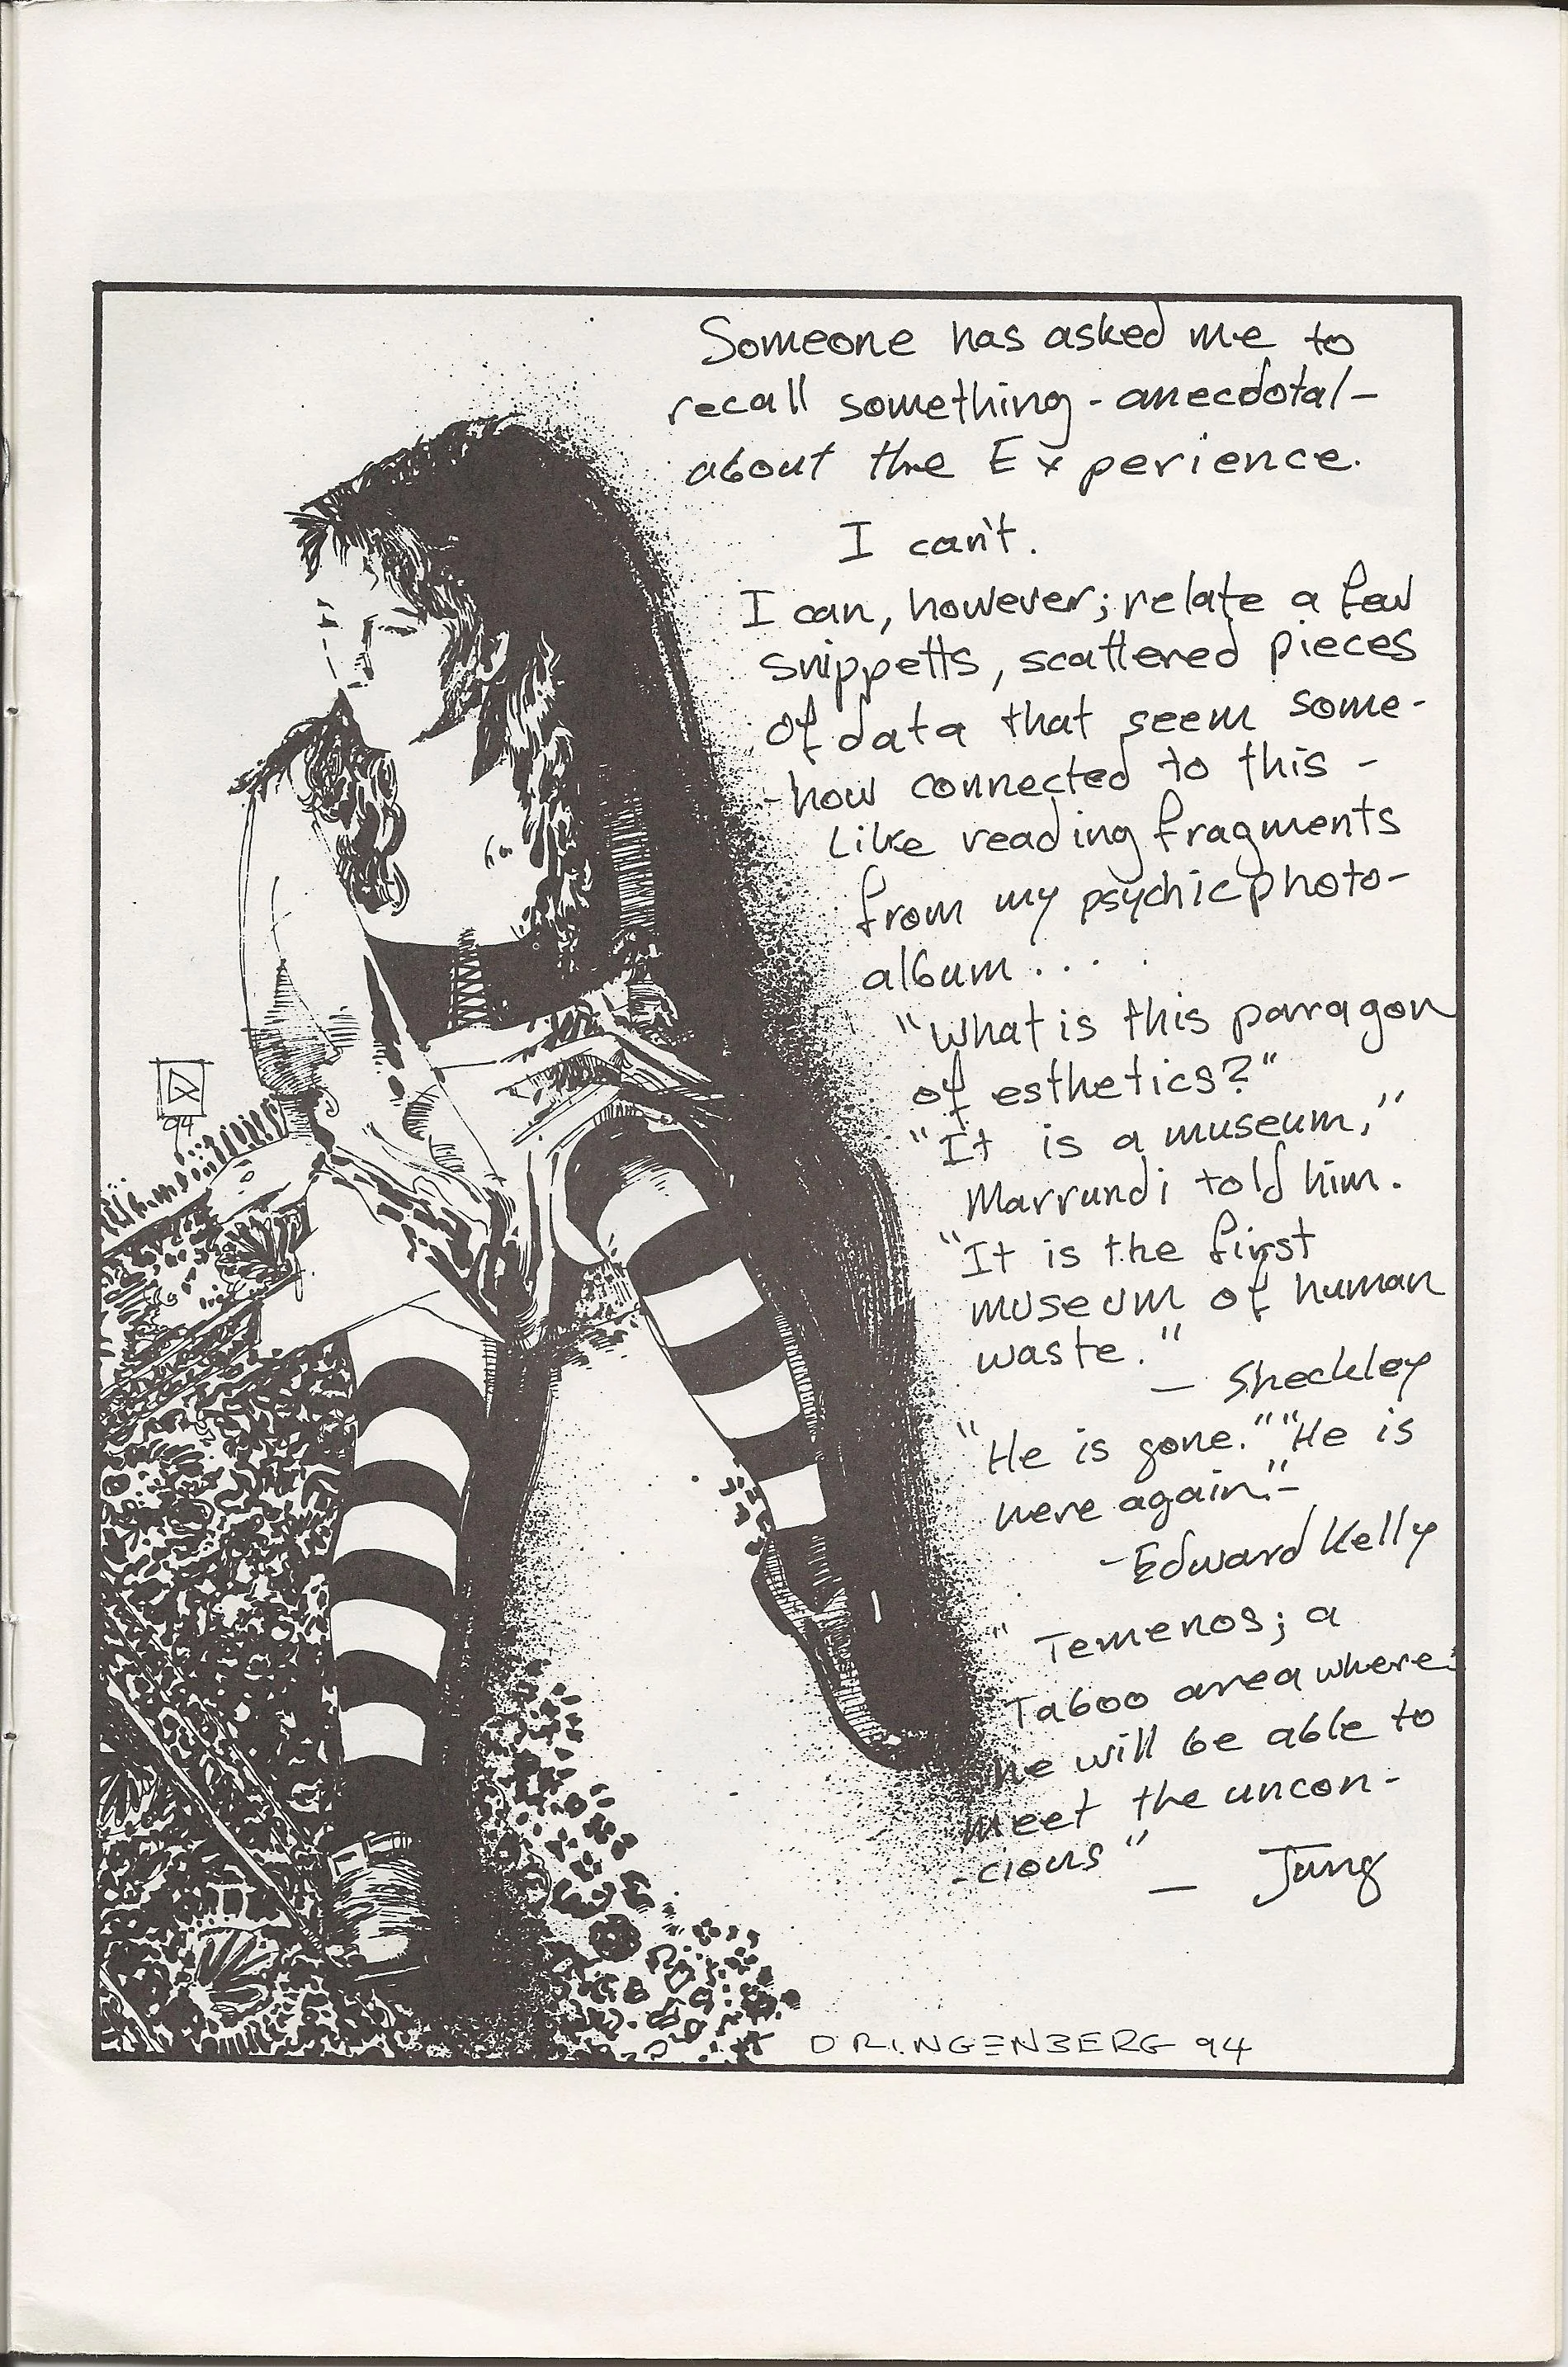 Someone has asked me to
recall something - anecdotal -
about the Experience.
I can't.
I can, however; relate a few
snippetts, scattered pieces
of data that seem some-
-how connected to this -
Like reading fragments
from my psychic photo-
album . . . .
"What is this paragon
of esthetics?"
"It is a museum,"
Marrundi told him.
"It is the first
museum of human
waste."
— Sheckley
"He is gone." "He is
here again." -
- Edward Kelly
" Temenos; a
Taboo area where
he will be able to
meet the uncon-
-cious" — Jung
94
DRINGENBERG 94